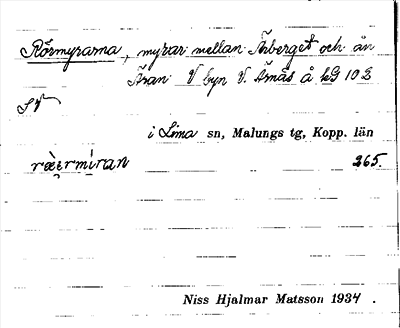 Rörmyrarna, myrar mellan Ärberget och ån
Äran V byn V. Ärnäs å kG 10 3
SV
i Lima sn, Malungs tg, Kopp. län
265.
Niss Hjalmar Matsson 1934 .